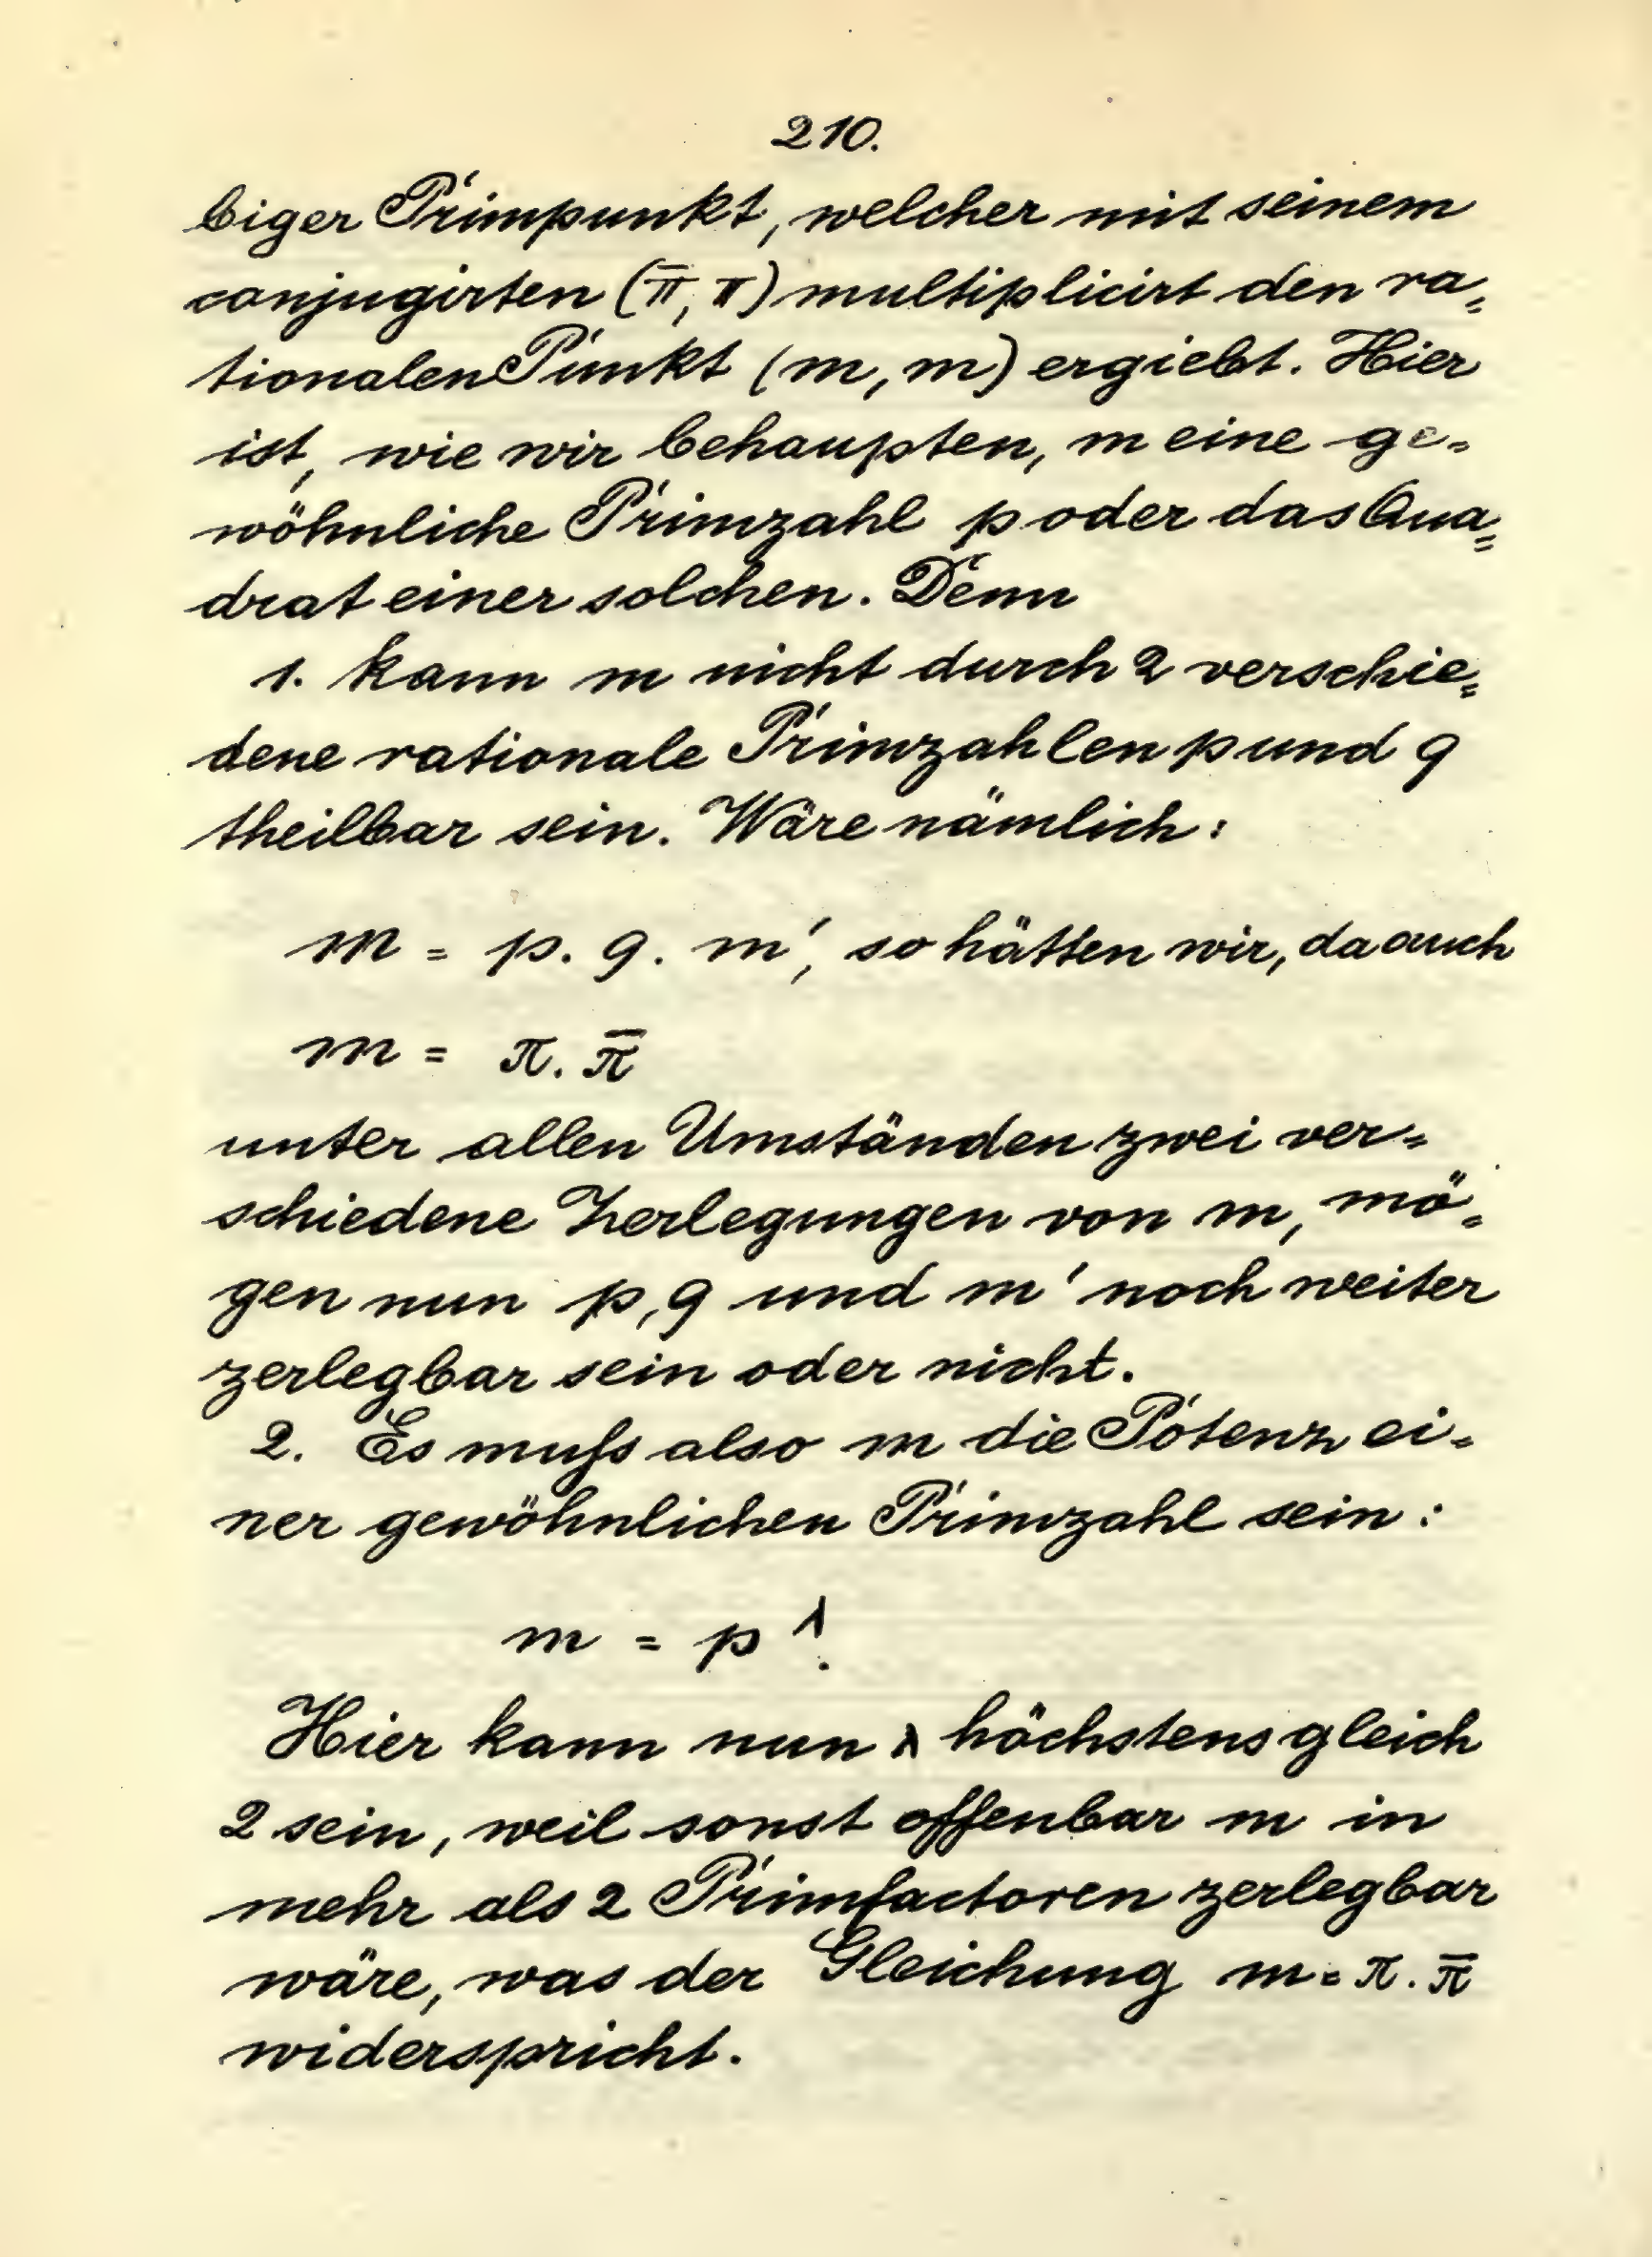 210.
biger Primpunkt, welcher mit seinem
conjugirten (π̄, π) multiplicirt den ra=
tionalen Punkt (m, m) ergiebt. Hier
ist, wie wir behaupten, m eine ge=
wöhnliche Primzahl p oder das Qua=
drat einer solchen. Denn
1. kann m nicht durch 2 verschie=
dene rationale Primzahlen p und q
theilbar sein. Wäre nämlich:
m = p. q. m', so hätten wir, da auch
m = π. π̄
unter allen Umständen zwei ver=
schiedene Zerlegungen von m, mö=
gen nun p, q und m' noch weiter
zerlegbar sein oder nicht.
2. Es muſs also m die Potenz ei=
ner gewöhnlichen Primzahl sein:
m = p^λ.
Hier kann nun λ höchstens gleich
2 sein, weil sonst offenbar m in
mehr als 2 Primfactoren zerlegbar
wäre, was der Gleichung m = π. π̄
widerspricht.